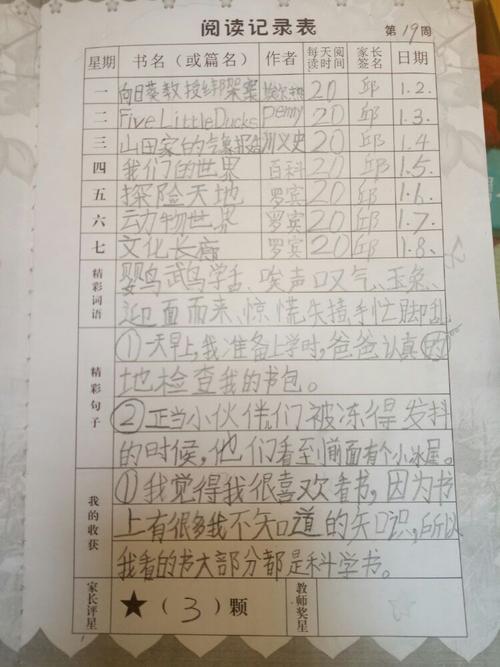 阅读记录表 第19周
星期 书名（或篇名） 作者 每天阅读时间 家长签名 日期
一 向日葵教授绑架案 20 邱 1.2.
二 Five Little Ducks Penny 20 邱 1.3.
三 山田家的气象报告 20 邱 1.4
四 我们的世界 百科 20 邱 1.5.
五 探险天地 罗宾 20 邱 1.6.
六 动物世界 罗宾 20 邱 1.7.
七 文化长廊 罗宾 20 邱 1.8.
精彩词语
鹦鸟鹉鸟学舌、唉声叹气、玉兔、
迎面而来、惊慌失措、手忙脚乱
精彩句子
①一天早上,我准备上学时,爸爸认真的
地检查我的书包。
②正当小伙伴们被冻得发抖
的时候,他们看到前面有个小冰屋。
我的收获
①我觉得我很喜欢看书,因为书
上有很多我不知道的知识,所以
我看的书大部分都是科学书。
家长评星 ★（3）颗 教师奖星